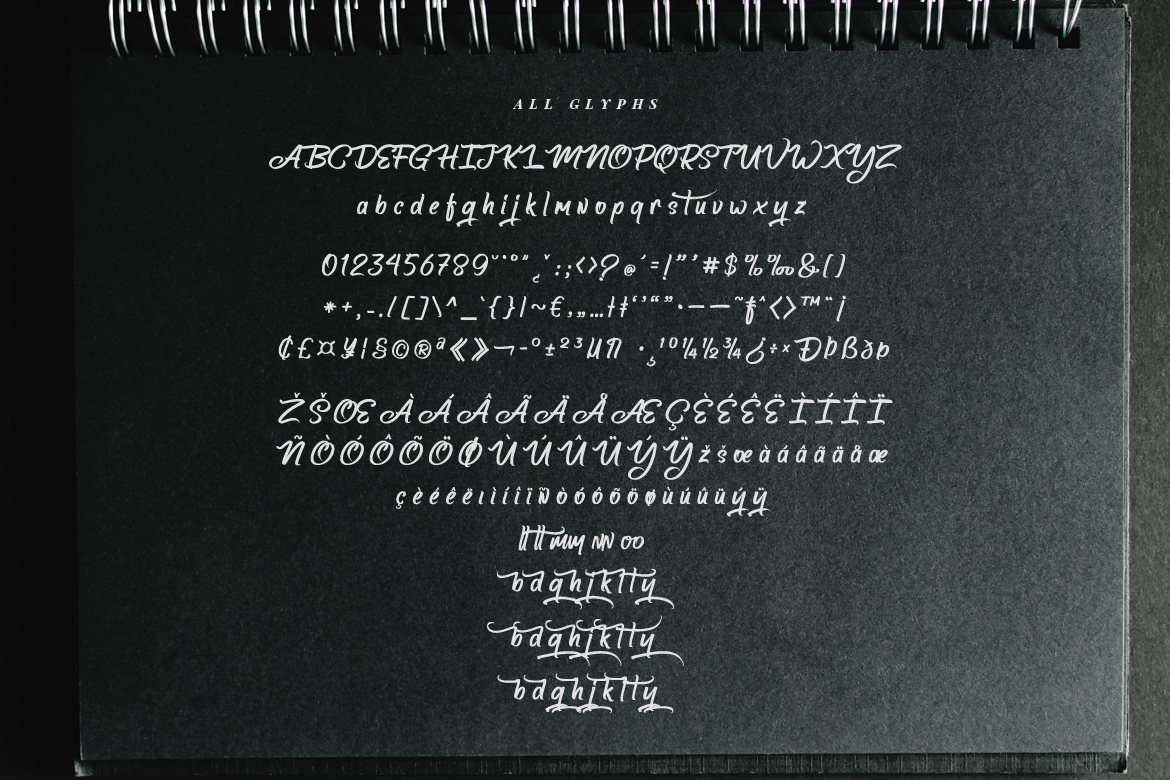 ALL GLYPHS
ABCDEFGHIJKLMNOPQRSTUVWXYZ
abcdefghijklmnopqrstuvwxyz
0123456789˘˙°˝ ¿ˇ:;<>?@´=!”’#$%‰&()
*+,-./[]\^_`{}|~€‚„…†‡‘’“”•–—˜ƒˆ‹›™¨¡
¢£¤¥¦§©®ª«»¬-°±²³µ¶ ·¸¹º¼½¾¿÷×ÐÞßðþ
ŽŠŒÀÁÂÃÄÅÆÇÈÉÊËÌÍÎÏ
ÑÒÓÔÕÖØÙÚÛÜÝŸžšœàáâãäåæ
çèéêëıìíîïñòóôõöøùúûüýÿ
lltt mm nn oo
bdghjkltty
bdghjkltty
bdghjkltty